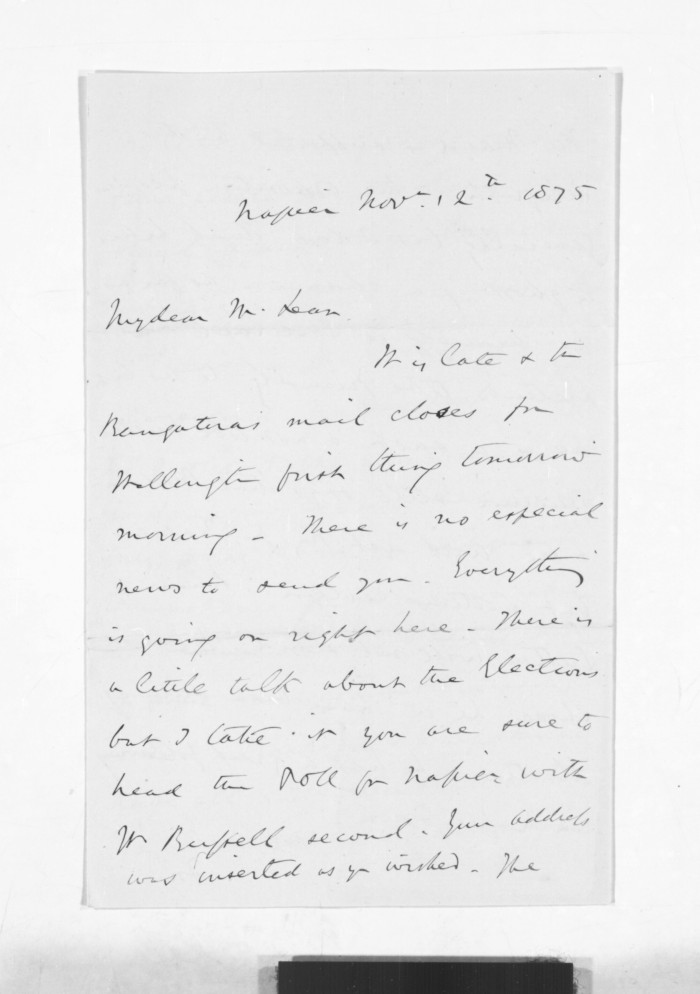 Napier Novr. 12th. 1875
My dear McLean.
It is late & the
Rangatira's mail closes for
Wellington first thing tomorrow
morning - There is no especial
news to send you. Everything
is going on right here - There is
a little talk about the Elections
but I take it you are sure to
head the Poll for Napier with
Buſsell second. Your addreſs
was inserted as you wished - The